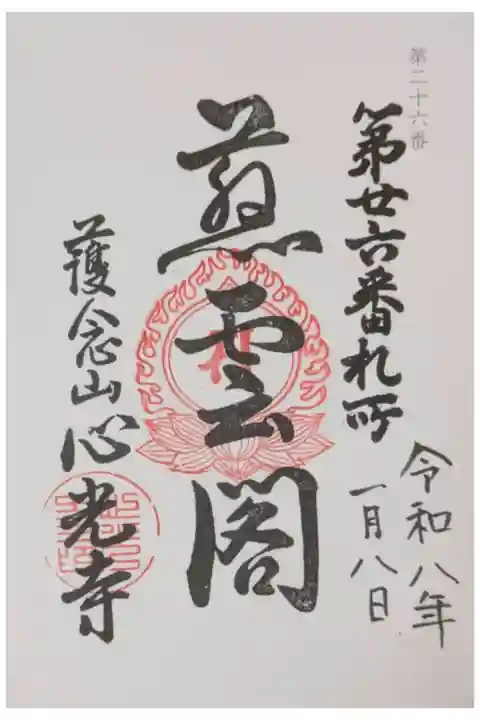 第二十六番
第廿六番札所
令和八年
一月八日
慈雲閣
護念山心光寺